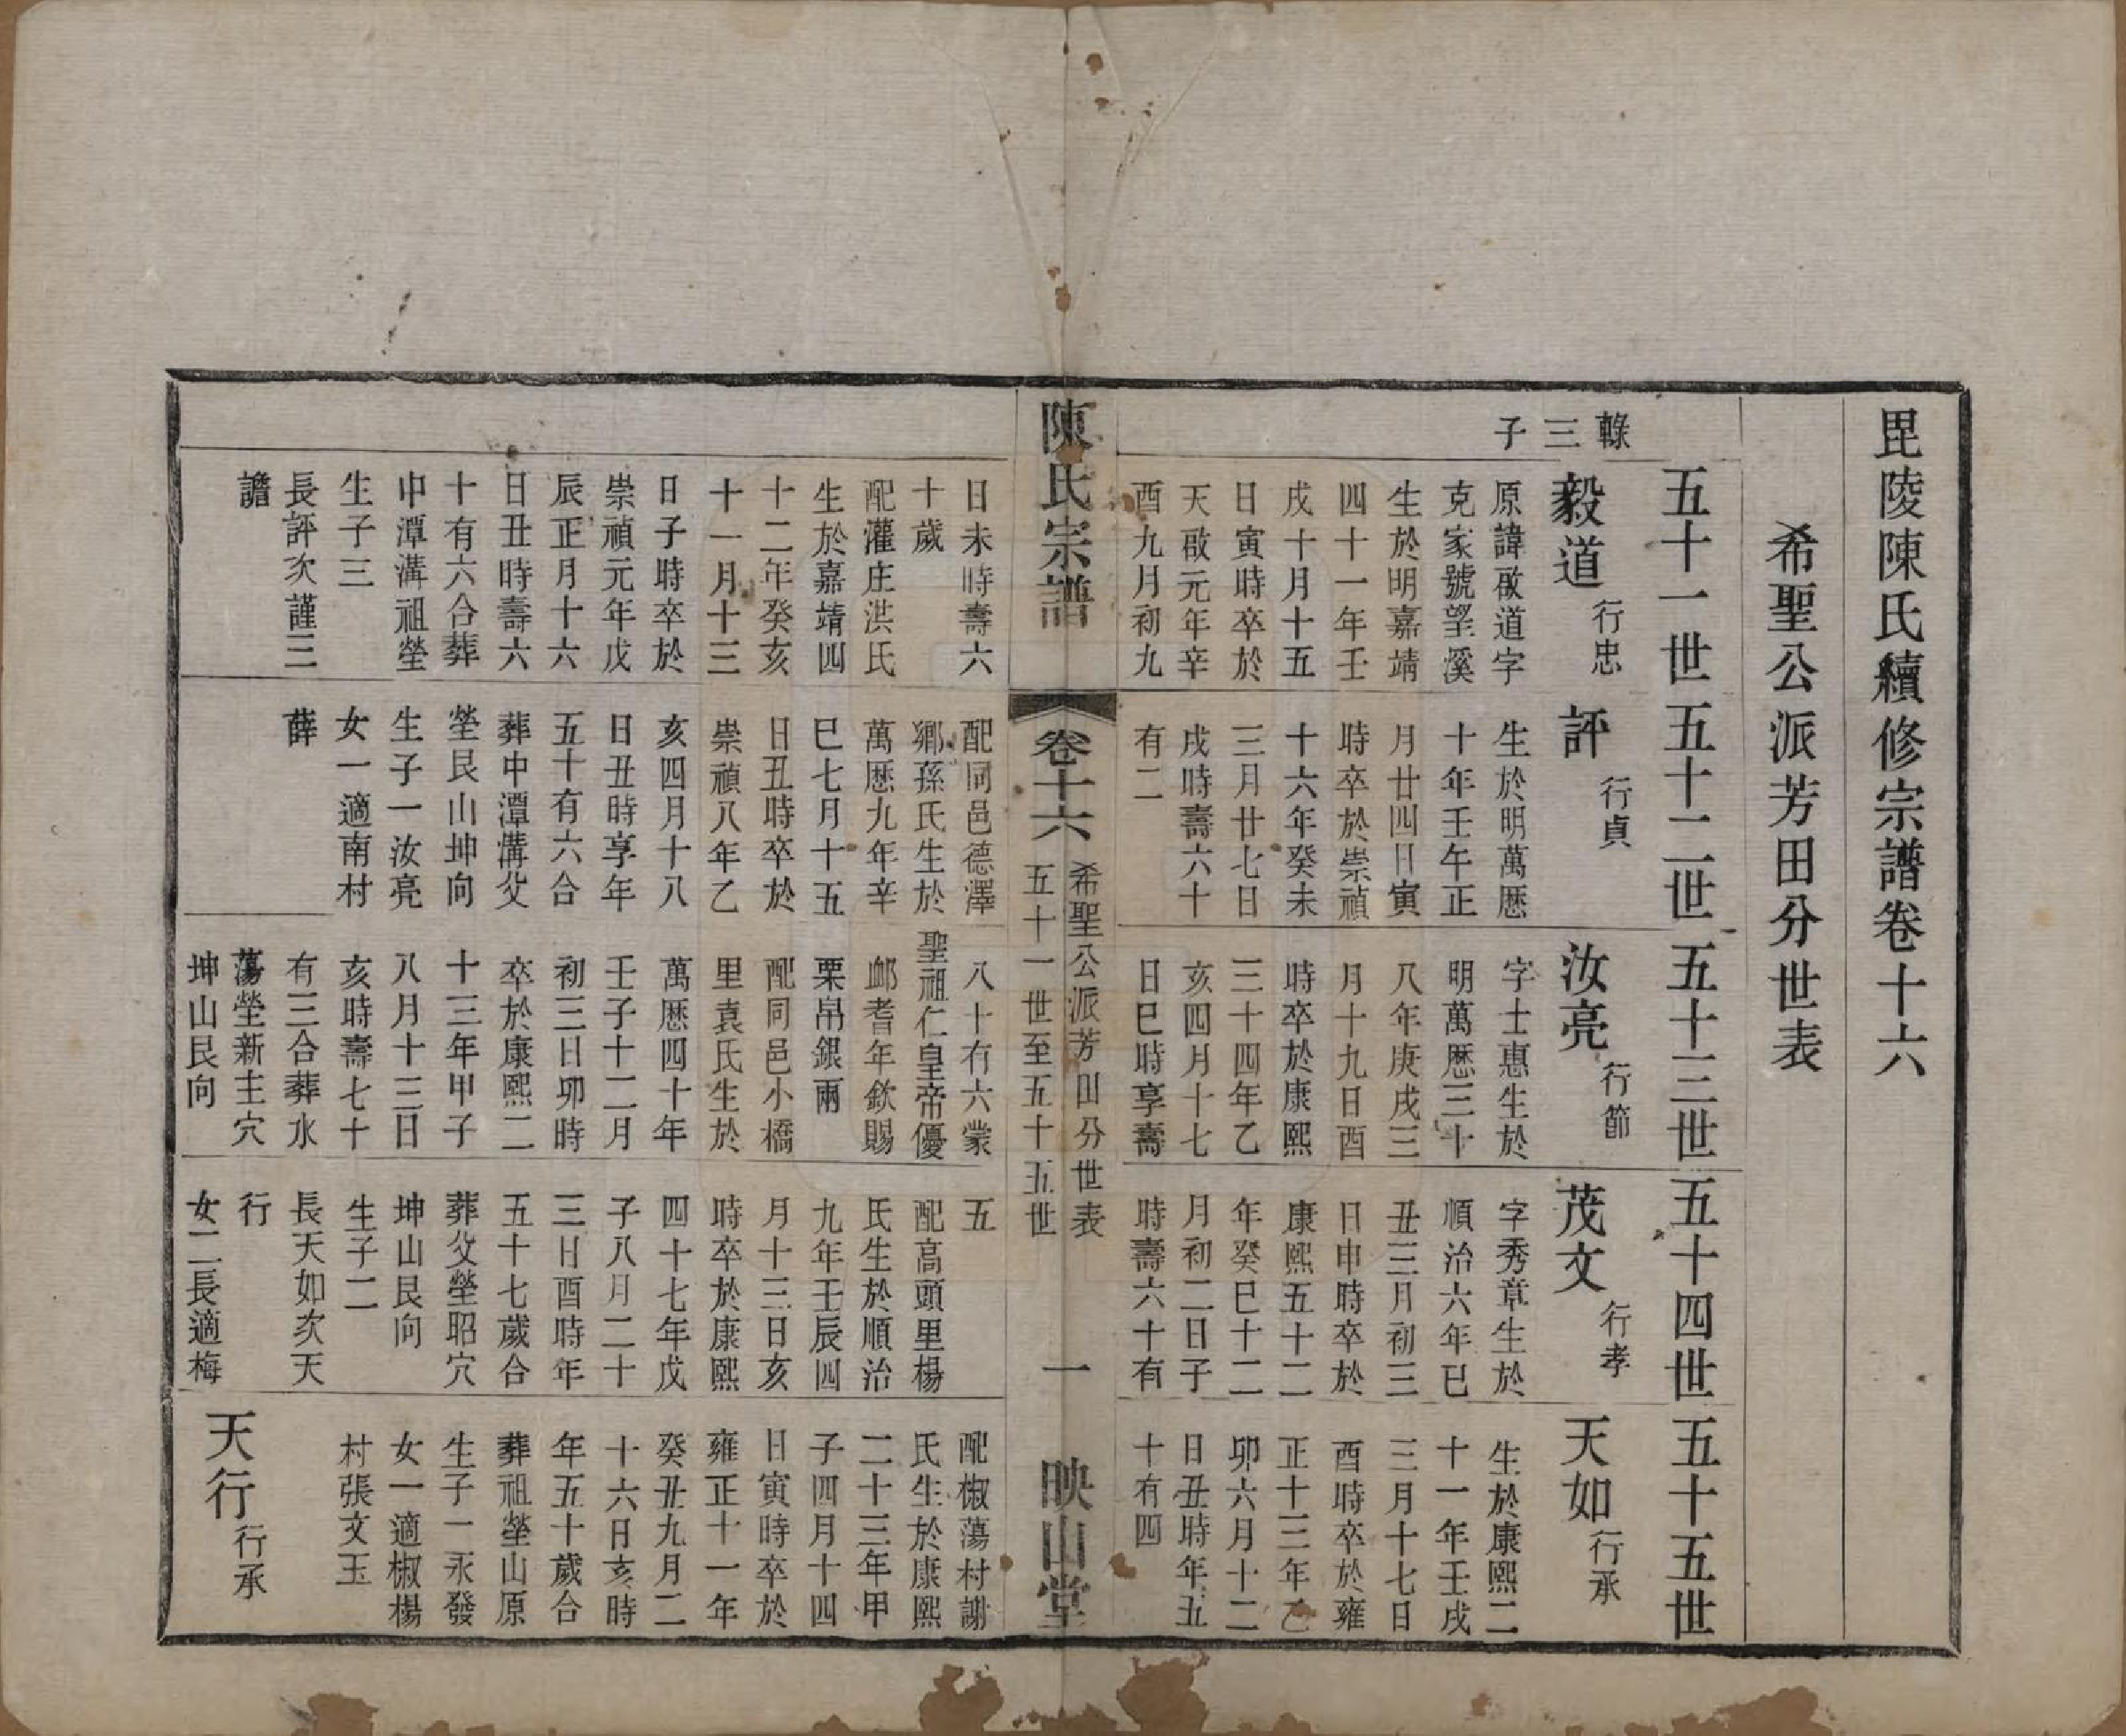 毘陵陳氏續修宗譜卷十六
希聖公派芳田分世表
五十一世
五十二世
五十三世
五十四世
五十五世
三子
毅道行忠
原諱啟道字
克家號望溪
生於明嘉靖
四十一年壬
戌十月十五
日寅時卒於
天啟元年辛
酉九月初九
日未時壽六
十歲
配灌庄洪氏
生於嘉靖四
十二年癸亥
十一月十三
日子時卒於
崇禎元年戊
辰正月十六
日丑時壽六
十有六合葬
中潭溝祖塋
生子三
長評次謹三
譫
評行貞
生於明萬歷
十年壬午正
月廿四日寅
時卒於崇禎
十六年癸未
三月廿七日
戌時壽六十
有二
配同邑德澤
鄉孫氏生於
萬歷九年辛
巳七月十五
日丑時卒於
崇禎八年乙
亥四月十八
日丑時享年
五十有六合
葬中潭溝父
塋艮山坤向
生子一汝亮
女一適南村
薛
汝亮行節
字士惠生於
明萬歷三十
八年庚戌三
月十九日酉
時卒於康熙
三十四年乙
亥四月十七
日巳時享壽
八十有六蒙
聖祖仁皇帝優
卹耆年欽賜
栗帛銀兩
配同邑小橋
里袁氏生於
萬歷四十年
壬子十二月
初三日卯時
卒於康熙二
十三年甲子
八月十三日
亥時壽七十
有三合葬水
蕩塋新主穴
坤山艮向
茂文行孝
字秀章生於
順治六年巳
丑三月初三
日申時卒於
康熙五十二
年癸巳十二
月初二日子
時壽六十有
五
配高頭里楊
氏生於順治
九年壬辰四
月十三日亥
時卒於康熙
四十七年戊
子八月二十
三日酉時年
五十七歲合
葬父塋昭穴
坤山艮向
生子二
長天如次天
行
女二長適梅
天如行承
生於康熙二
十一年壬戌
三月十七日
酉時卒於雍
正十三年乙
卯六月十二
日丑時年五
十有四
配椒蕩村謝
氏生於康熙
二十三年甲
子四月十四
日寅時卒於
雍正十一年
癸丑九月二
十六日亥時
年五十歲合
葬祖塋山原
生子一永發
女一適椒楊
村張文玉
天行行承
陳氏宗譜
卷十六
希聖公派芳田分世表
五十一世至五十五世
一
映山堂